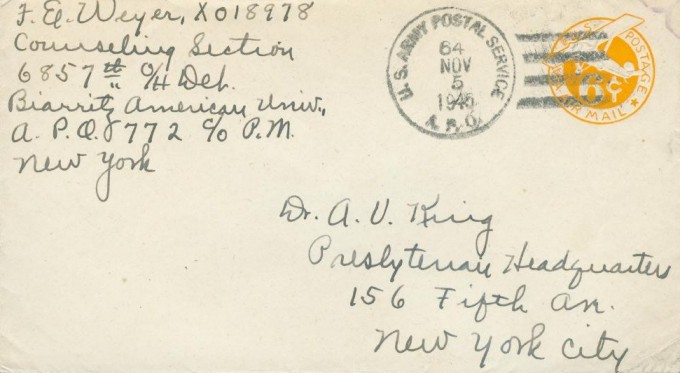 F. E. Weyer, XO18978
Counseling Section
6857th O/H Det.
Biarritz American Univ.,
A. P. O. 8772 c/o P.M.
New York
U.S. ARMY POSTAL SERVICE
64
NOV
5
1945
A.P.O.
U.S. POSTAGE
6¢
AIR MAIL
Dr. A. V. King
Presbyterian Headquarters
156 Fifth Av.
New York City